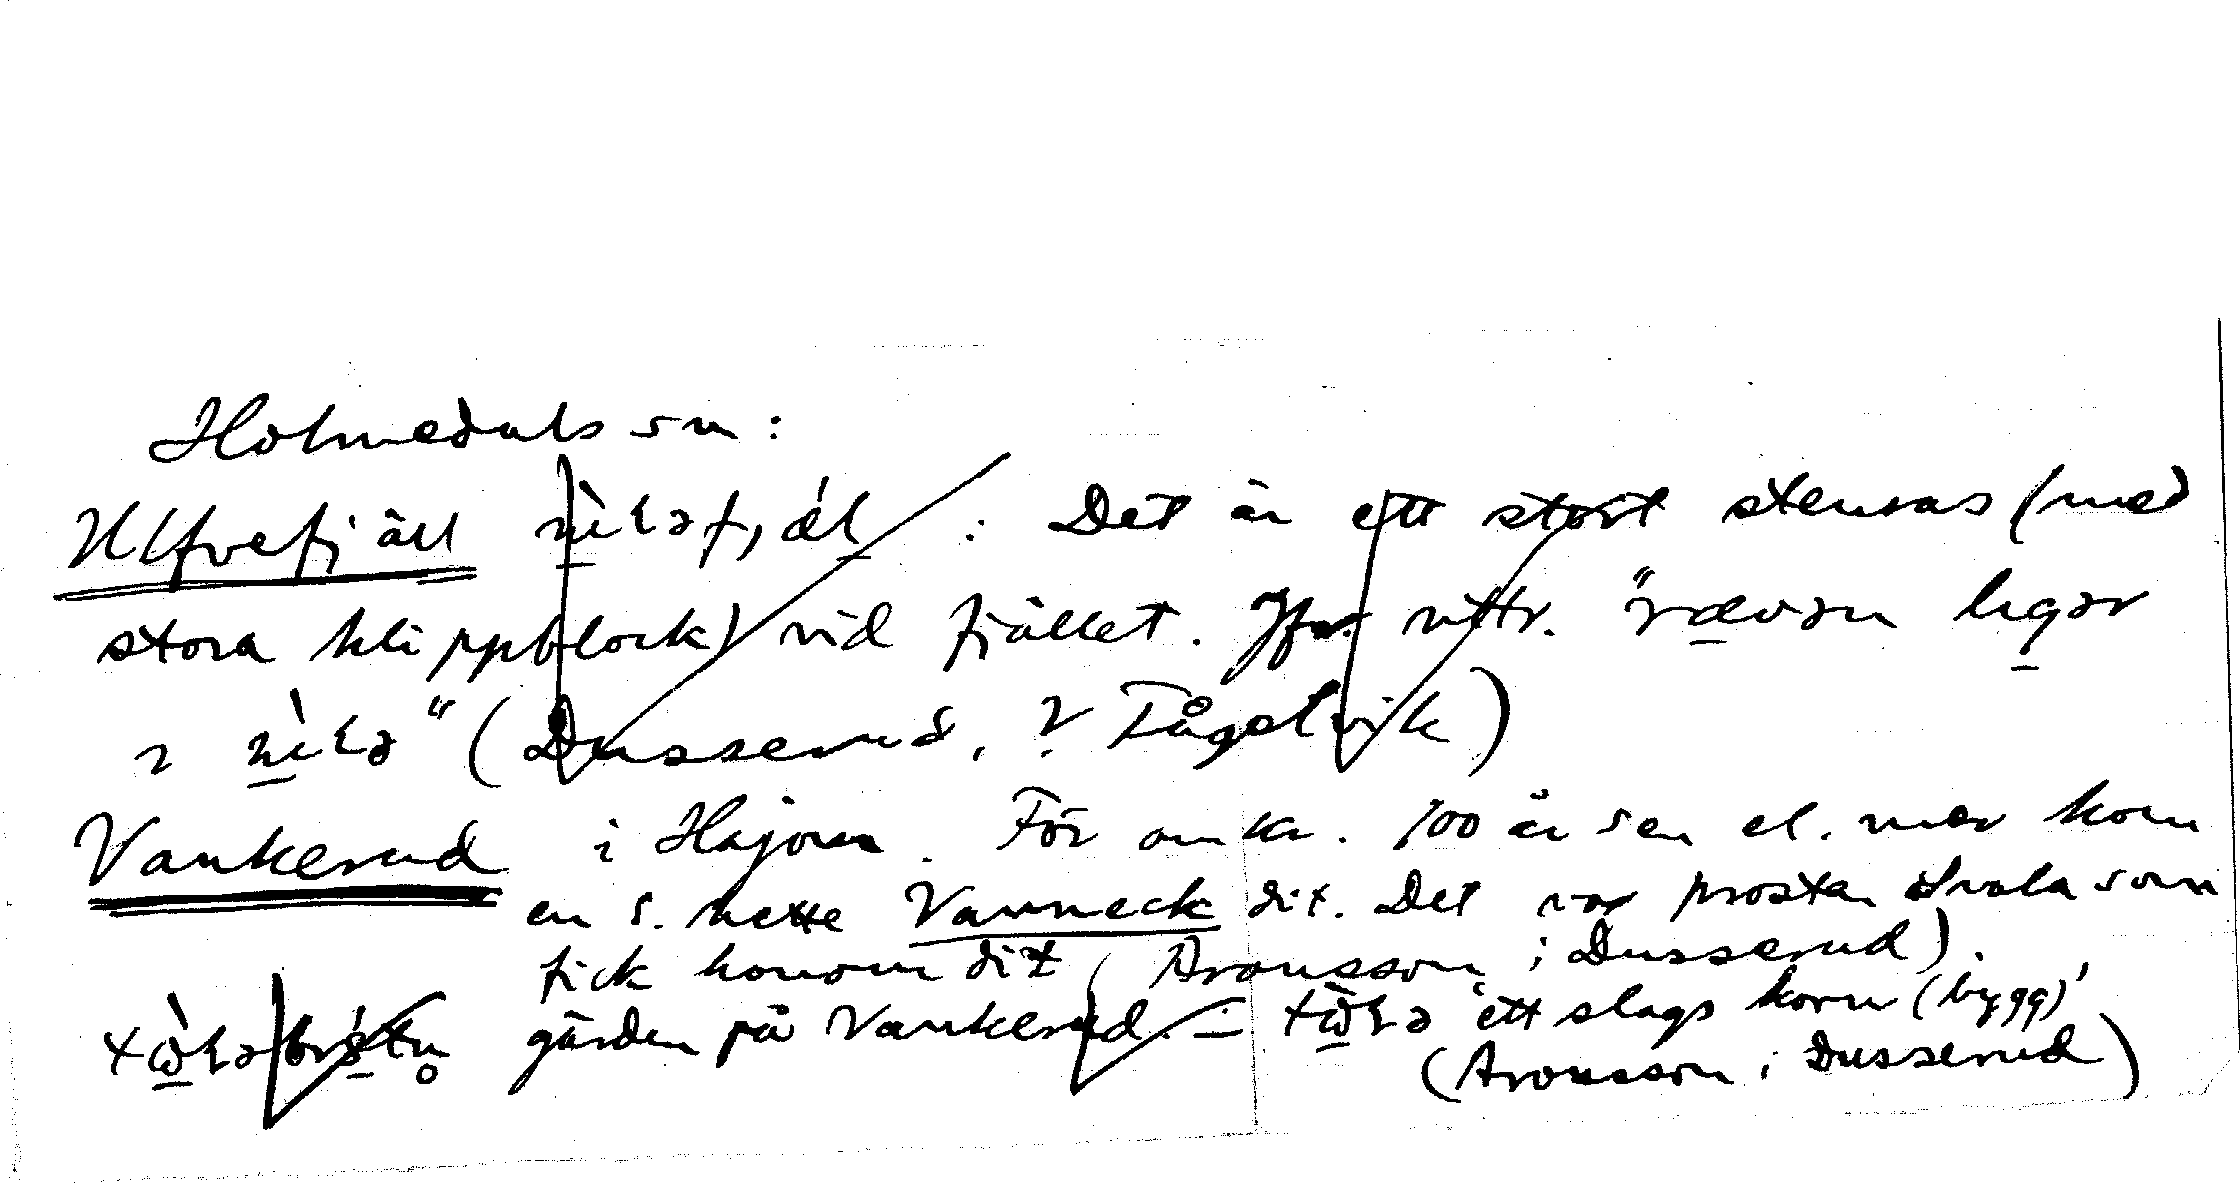 Holmedals sn:
Ulfvefjäll : Det är ett stort stenras (med
stora klippblock) vid fjället. Jfr. uttr. "rævən ligər
ı ùɽə" (Dusserud, ? Fågelvik)
Vankerud i Häjom. För omkr. 100 år sen el. mer kom
en s. hette Vanneck dit. Det var prosten Svala som
fick honom dit (Aronsson i Dusserud).
gärden på Vankerud. – 'ett slags korn (bygg)'
(Aronsson i Dusserud)